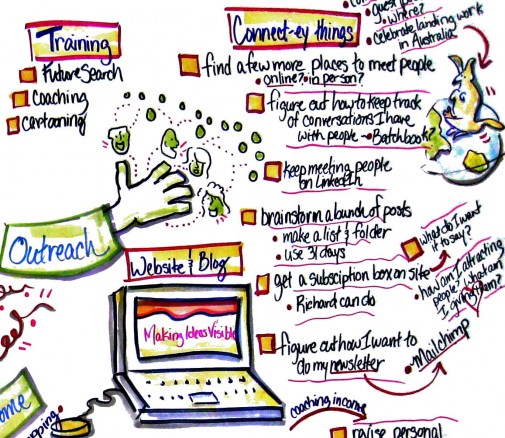 Training
FutureSearch
coaching
cartooning
Connect-ey things
where?
celebrate landing work
in Australia
find a few more places to meet people
online? in person?
figure out how to keep track
of conversations I have
with people - Batchbook?
keep meeting people
on LinkedIn
brainstorm a bunch of posts
make a list & folder
use 31 days
get a subsciption box on site
Richard can do
what do I want
to say?
how am I attracting
people? what am
I giving them?
figure out how I want to
do my newsletter
Mailchimp
coaching income
revise personal
Outreach
Website & Blog
Making Ideas Visible